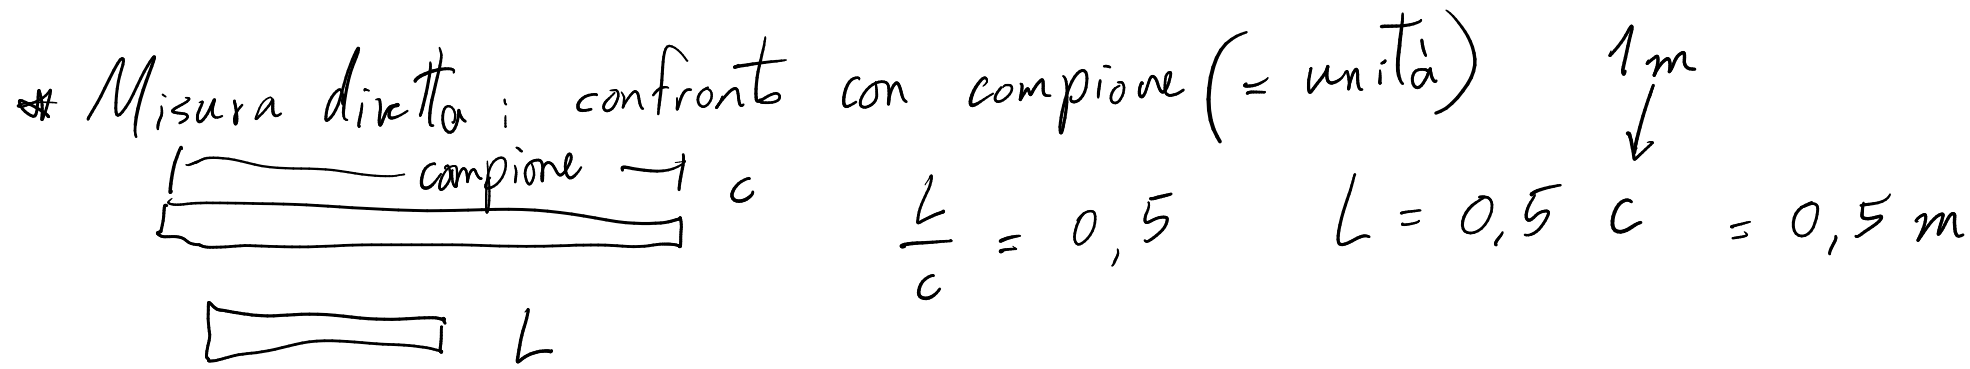 * Misura diretta: confronto con campione (= unità) 1 m
campione c
L/c = 0,5 L = 0,5 c = 0,5 m
L